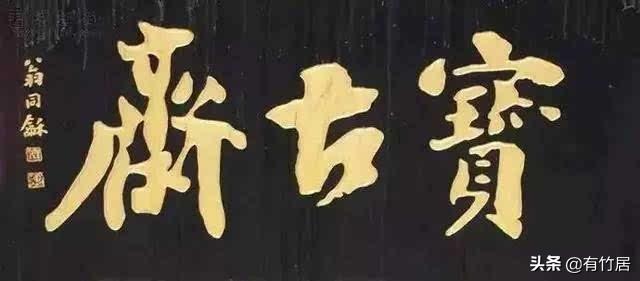 寶古齋
翁同龢
头条 @有竹居